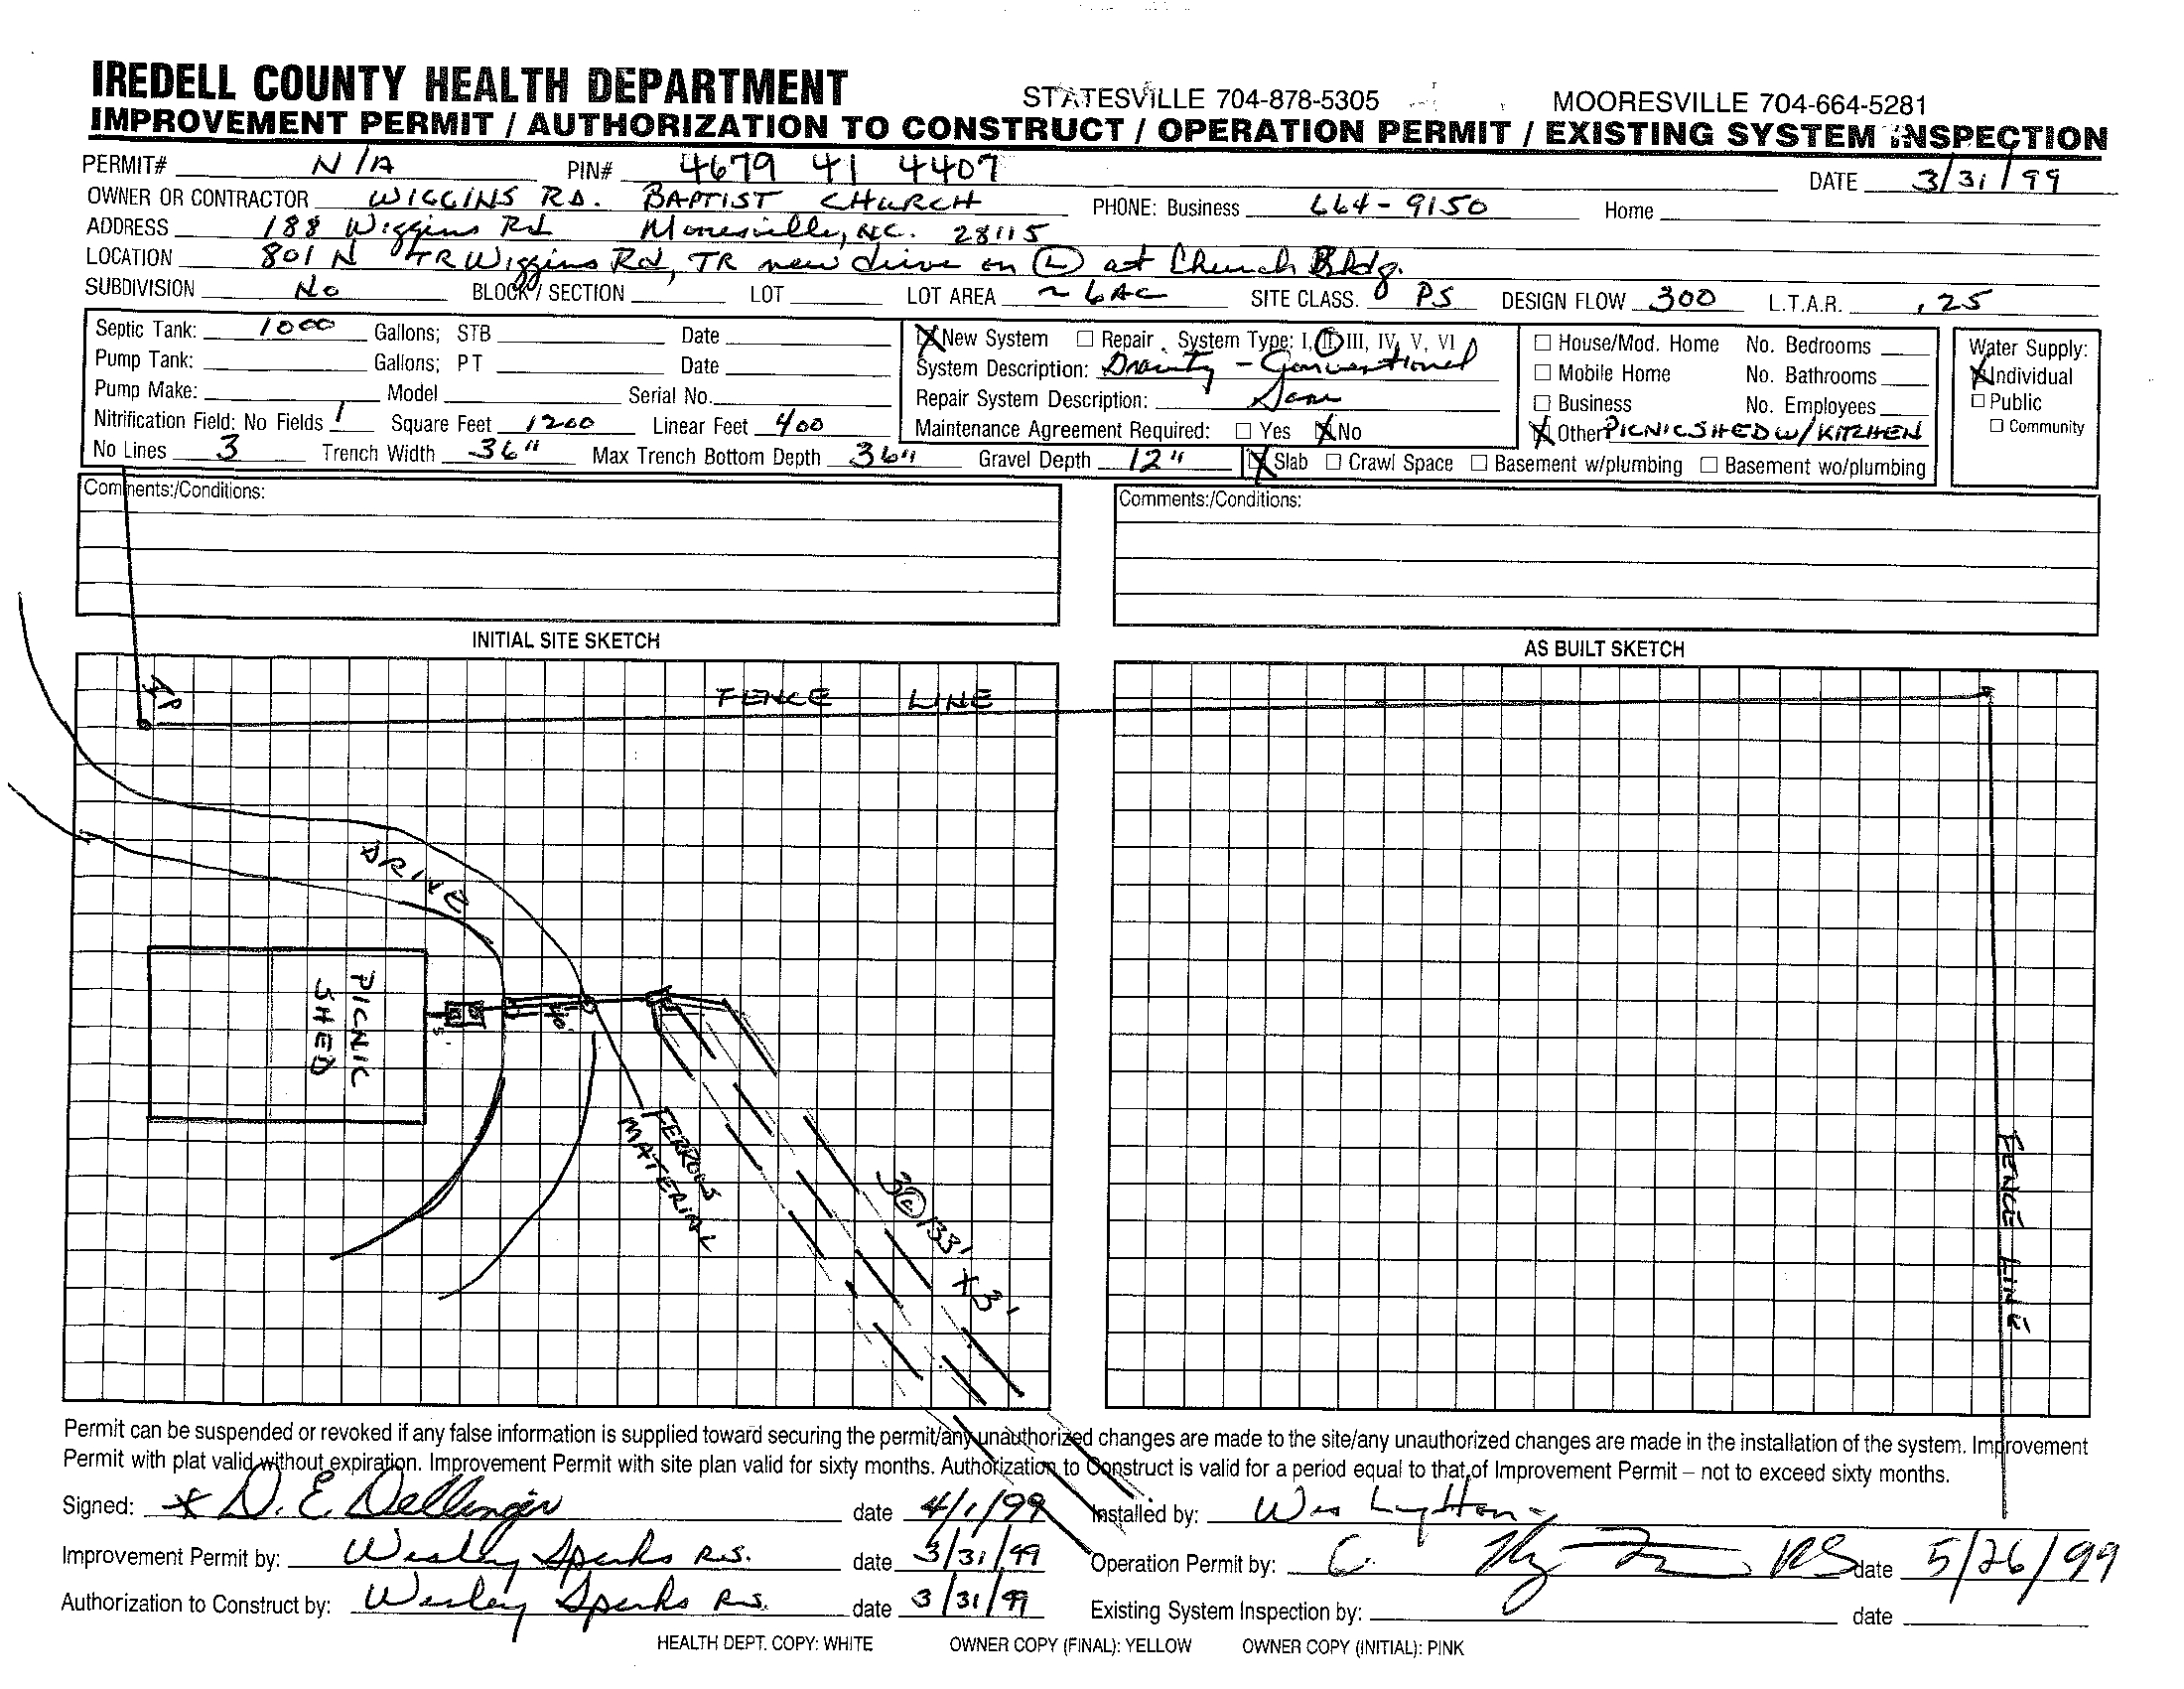 IREDELL COUNTY HEALTH DEPARTMENT STATESVILLE 704-878-5305 MOORESVILLE 704-664-5281
IMPROVEMENT PERMIT / AUTHORIZATION TO CONSTRUCT / OPERATION PERMIT / EXISTING SYSTEM INSPECTION
PERMIT# N/A PIN# 4679 41 4407 DATE 3/31/99
OWNER OR CONTRACTOR WIGGINS RD. BAPTIST CHURCH PHONE: Business 664-9150 Home
ADDRESS 188 Wiggins Rd Mooresville, NC. 28115
LOCATION 801 N TR Wiggins Rd, TR new drive on (L) at Church Bldg.
SUBDIVISION No BLOCK / SECTION LOT LOT AREA ~ 6 AC SITE CLASS. PS DESIGN FLOW 300 L.T.A.R. .25
Septic Tank: 1000 Gallons; STB Date
Pump Tank: Gallons; PT Date
Pump Make: Model Serial No.
Nitrification Field: No Fields 1 Square Feet 1200 Linear Feet 400
No Lines 3 Trench Width 36" Max Trench Bottom Depth 36" Gravel Depth 12"
X New System □ Repair System Type: I, II, III, IV, V, VI
System Description: Gravity - Conventional
Repair System Description: Same
Maintenance Agreement Required: □ Yes X No
□ House/Mod. Home No. Bedrooms
□ Mobile Home No. Bathrooms
□ Business No. Employees
X Other PICNIC SHED W/ KITCHEN
X Slab □ Crawl Space □ Basement w/plumbing □ Basement wo/plumbing
Water Supply:
X Individual
□ Public
□ Community
Comments:/Conditions:
Comments:/Conditions:
INITIAL SITE SKETCH
AS BUILT SKETCH
FENCE LINE
DRIVE
PICNIC
SHED
5'
40'
FERROUS
MATERIAL
3@133' X 3'
FENCE LINE
Permit can be suspended or revoked if any false information is supplied toward securing the permit/any unauthorized changes are made to the site/any unauthorized changes are made in the installation of the system. Improvement
Permit with plat valid without expiration. Improvement Permit with site plan valid for sixty months. Authorization to Construct is valid for a period equal to that of Improvement Permit – not to exceed sixty months.
Signed: * D. E. Dellinger date 4/1/99 Installed by: Wes Lytton
Improvement Permit by: Wesley Sparks R.S. date 3/31/99 Operation Permit by: RS date 5/26/99
Authorization to Construct by: Wesley Sparks R.S. date 3/31/99 Existing System Inspection by: date
HEALTH DEPT. COPY: WHITE OWNER COPY (FINAL): YELLOW OWNER COPY (INITIAL): PINK